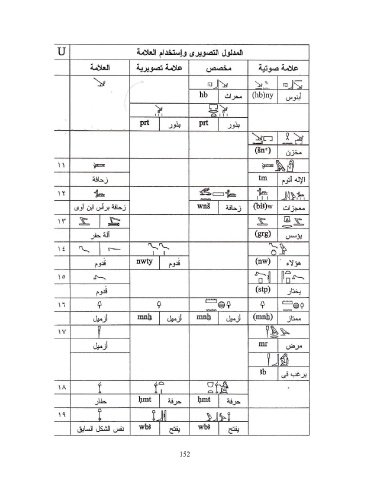 U المدلول التصويرى وإستخدام العلامة
العلامة علامة تصويرية مخصص علامة صوتية
محراث hb أبنوس (hb)ny
بذور prt بذور prt
مخزن (šnꜥ)
١١
زحافة الإله أتوم tm
١٢
زحافة برأس ابن آوى زحافة wnš معجزات (biꜣ)w
١٣
آلة حفر يؤسس (grg)
١٤
قدوم قدوم nwty هؤلاء (nw)
١٥
قدوم يختار (stp)
١٦
أزميل أزميل mnḫ أزميل mnḫ ممتاز (mnḫ)
١٧
أزميل مرض mr
يرغب فى ꜣb
١٨
حفار حرفة ḥmt حرفة ḥmt
١٩
نفس الشكل السابق يفتح wbꜣ يفتح wbꜣ
152